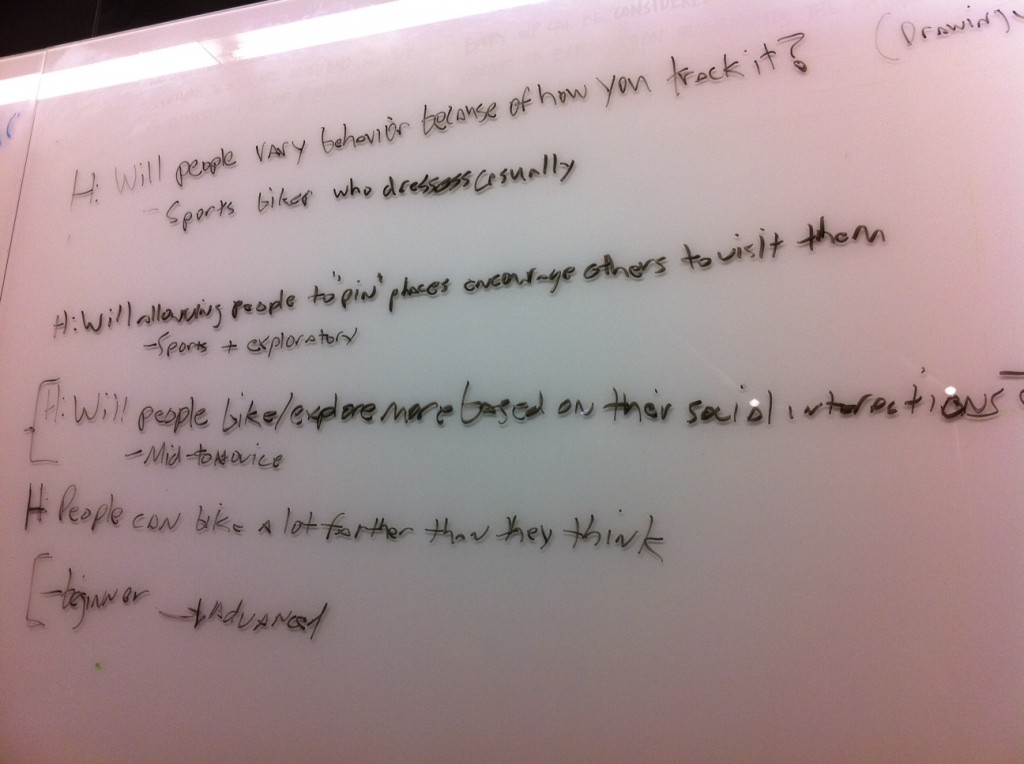 (Drawings
H: Will people vary behavior because of how you track it?
- Sports biker who dressess casually
H: Will allowing people to "pin" places encourage others to visit them
- Sports + exploratory
H: Will people bike/explore more based on their social interactions
- Mid-to novice
H: People can bike a lot farther than they think
- beginner → Advanced